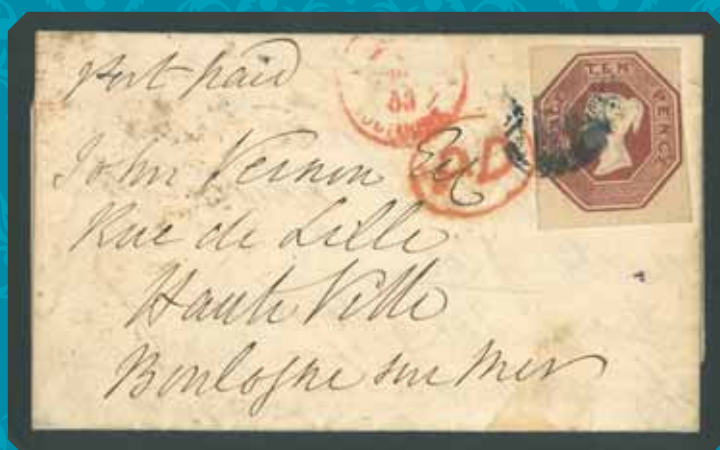 Post paid
John Vernon Esq
Rue de Lille
Haute Ville
Boulogne sur Mer
TEN PENCE
P.D
53